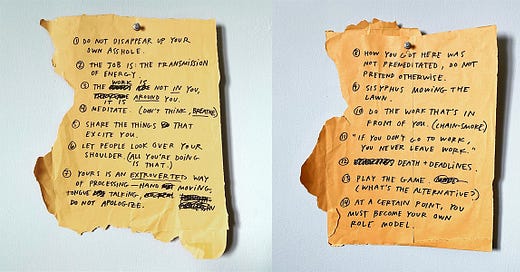 ① DO NOT DISAPPEAR UP YOUR
OWN ASSHOLE.
② THE JOB IS: THE TRANSMISSION
OF ENERGY.
③ THE WORK IS NOT IN YOU,
IT IS AROUND YOU.
④ MEDITATE (DON'T THINK, BREATHE)
⑤ SHARE THE THINGS THAT
EXCITE YOU.
⑥ LET PEOPLE LOOK OVER YOUR
SHOULDER. (ALL YOU'RE DOING
IS THAT.)
⑦ YOURS IS AN EXTROVERTED WAY
OF PROCESSING—HAND MOVING,
TONGUE TALKING,
DO NOT APOLOGIZE.
⑧ HOW YOU GOT HERE WAS
NOT PREMEDITATED, DO NOT
PRETEND OTHERWISE.
⑨ SISYPHUS MOWING THE
LAWN.
⑩ DO THE WORK THAT'S IN
FRONT OF YOU. (CHAIN-SMOKE)
⑪ "IF YOU DON'T GO TO WORK,
YOU NEVER LEAVE WORK."
⑫ DEATH + DEADLINES.
⑬ PLAY THE GAME.
(WHAT'S THE ALTERNATIVE?)
⑭ AT A CERTAIN POINT, YOU
MUST BECOME YOUR OWN
ROLE MODEL.